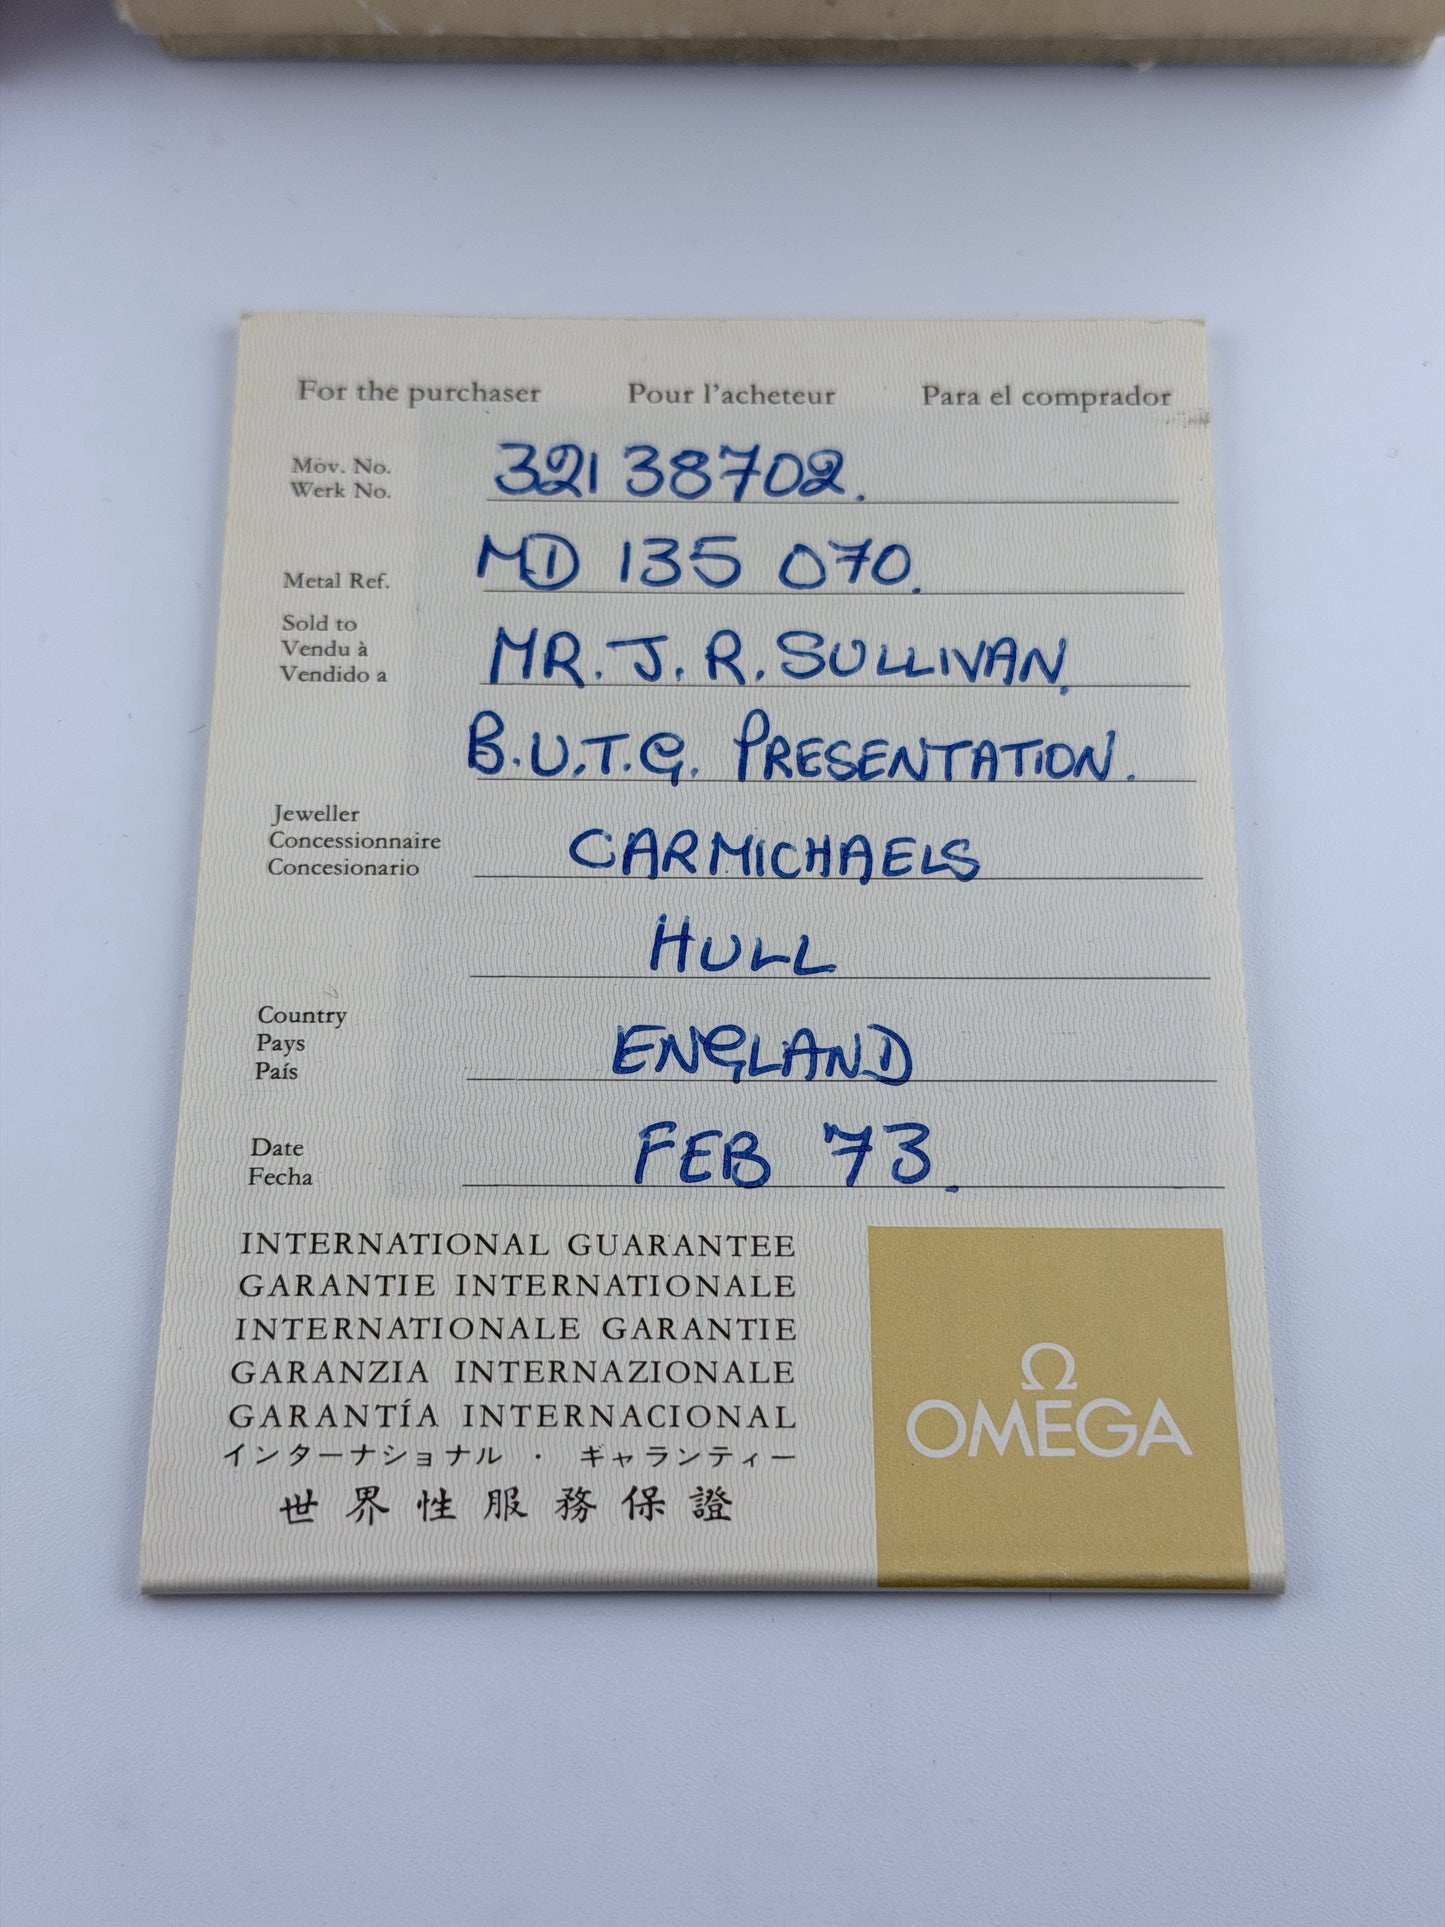 For the purchaser Pour l'acheteur Para el comprador
Mov. No.
Werk No.
32138702.
Metal Ref.
MD 135 070.
Sold to
Vendu à
Vendido a
MR. J. R. SULLIVAN.
B.U.T.G. PRESENTATION.
Jeweller
Concessionnaire
Concesionario
CARMICHAELS
HULL
Country
Pays
País
ENGLAND
Date
Fecha
FEB '73.
INTERNATIONAL GUARANTEE
GARANTIE INTERNATIONALE
INTERNATIONALE GARANTIE
GARANZIA INTERNAZIONALE
GARANTÍA INTERNACIONAL
インターナショナル · ギャランティー
世界性服務保證
Ω
OMEGA